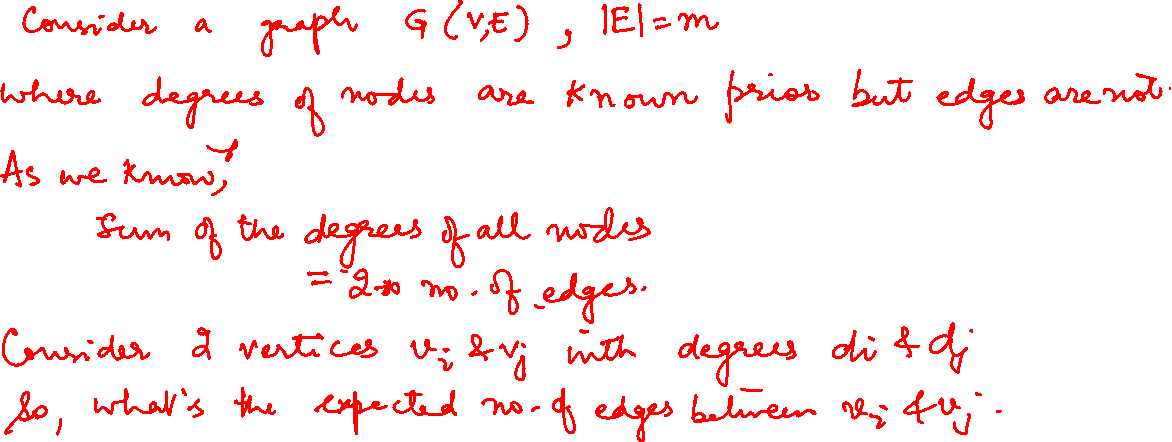 Consider a graph G (V,E) , |E|=m
where degrees of nodes are known prior but edges are not.
As we know,
Sum of the degrees of all nodes
= 2 * no. of edges.
Consider 2 vertices vi & vj with degrees di & dj
So, what's the expected no. of edges between vi & vj.